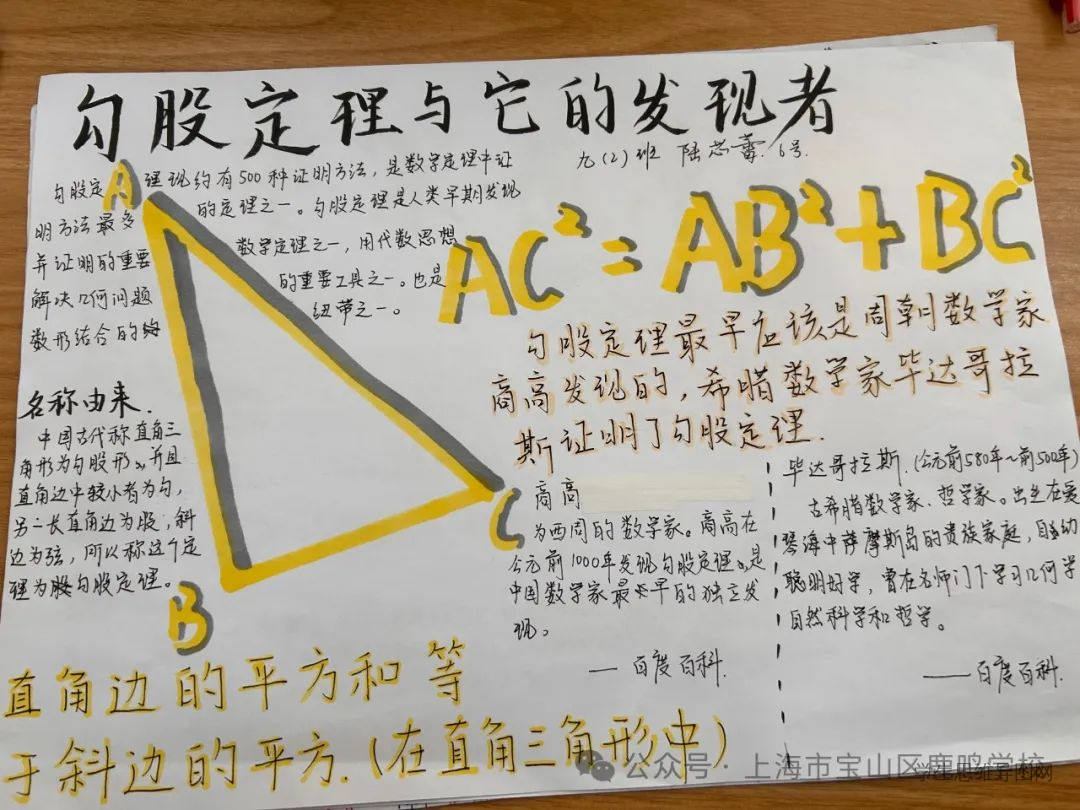 勾股定理与它的发现者
九(2)班 陆芯蕾 6号.
勾股定理现约有500种证明方法,是数学定理中证
明方法最多的定理之一。勾股定理是人类早期发现
并证明的重要数学定理之一,用代数思想
解决几何问题的重要工具之一。也是
数形结合的纽带之一。
A
B
C
AC²=AB²+BC²
勾股定理最早应该是周朝数学家
商高发现的,希腊数学家毕达哥拉
斯证明了勾股定理.
名称由来.
中国古代称直角三
角形为勾股形。并且
直角边中较小者为勾,
另一长直角边为股,斜
边为弦,所以称这个定
理为勾股定理。
商高
为西周的数学家。商高在
公元前1000年发现勾股定理。是
中国数学家最早的独立发
现。
——百度百科.
毕达哥拉斯.(公元前580年~前500年)
古希腊数学家、哲学家。出生在爱
琴海中萨摩斯岛的贵族家庭,自幼
聪明好学,曾在名师门下学习几何学
自然科学和哲学。
——百度百科.
直角边的平方和等
于斜边的平方.(在直角三角形中)
公众号·上海市宝山区鹿鸣学校